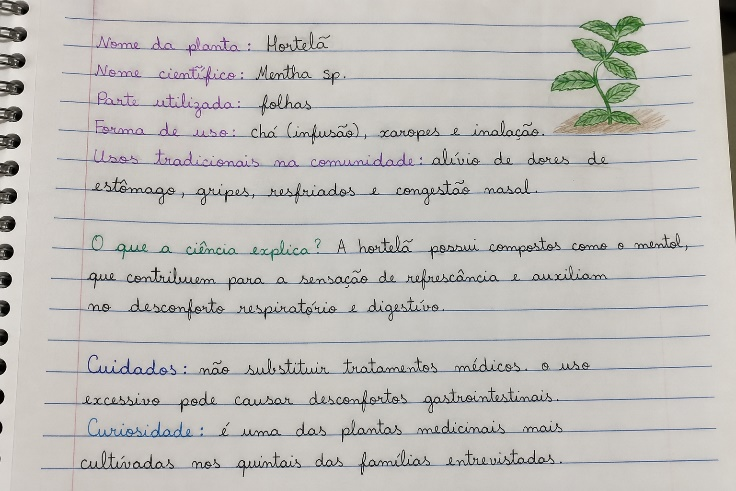 Nome da planta: Hortelã
Nome científico: Mentha sp.
Parte utilizada: folhas
Forma de uso: chá (infusão), xaropes e inalação.
Usos tradicionais na comunidade: alívio de dores de
estômago, gripes, resfriados e congestão nasal.
O que a ciência explica? A hortelã possui compostos como o mentol,
que contribuem para a sensação de refrescância e auxiliam
no desconforto respiratório e digestivo.
Cuidados: não substituir tratamentos médicos. o uso
excessivo pode causar desconfortos gastrointestinais.
Curiosidade: é uma das plantas medicinais mais
cultivadas nos quintais das famílias entrevistadas.